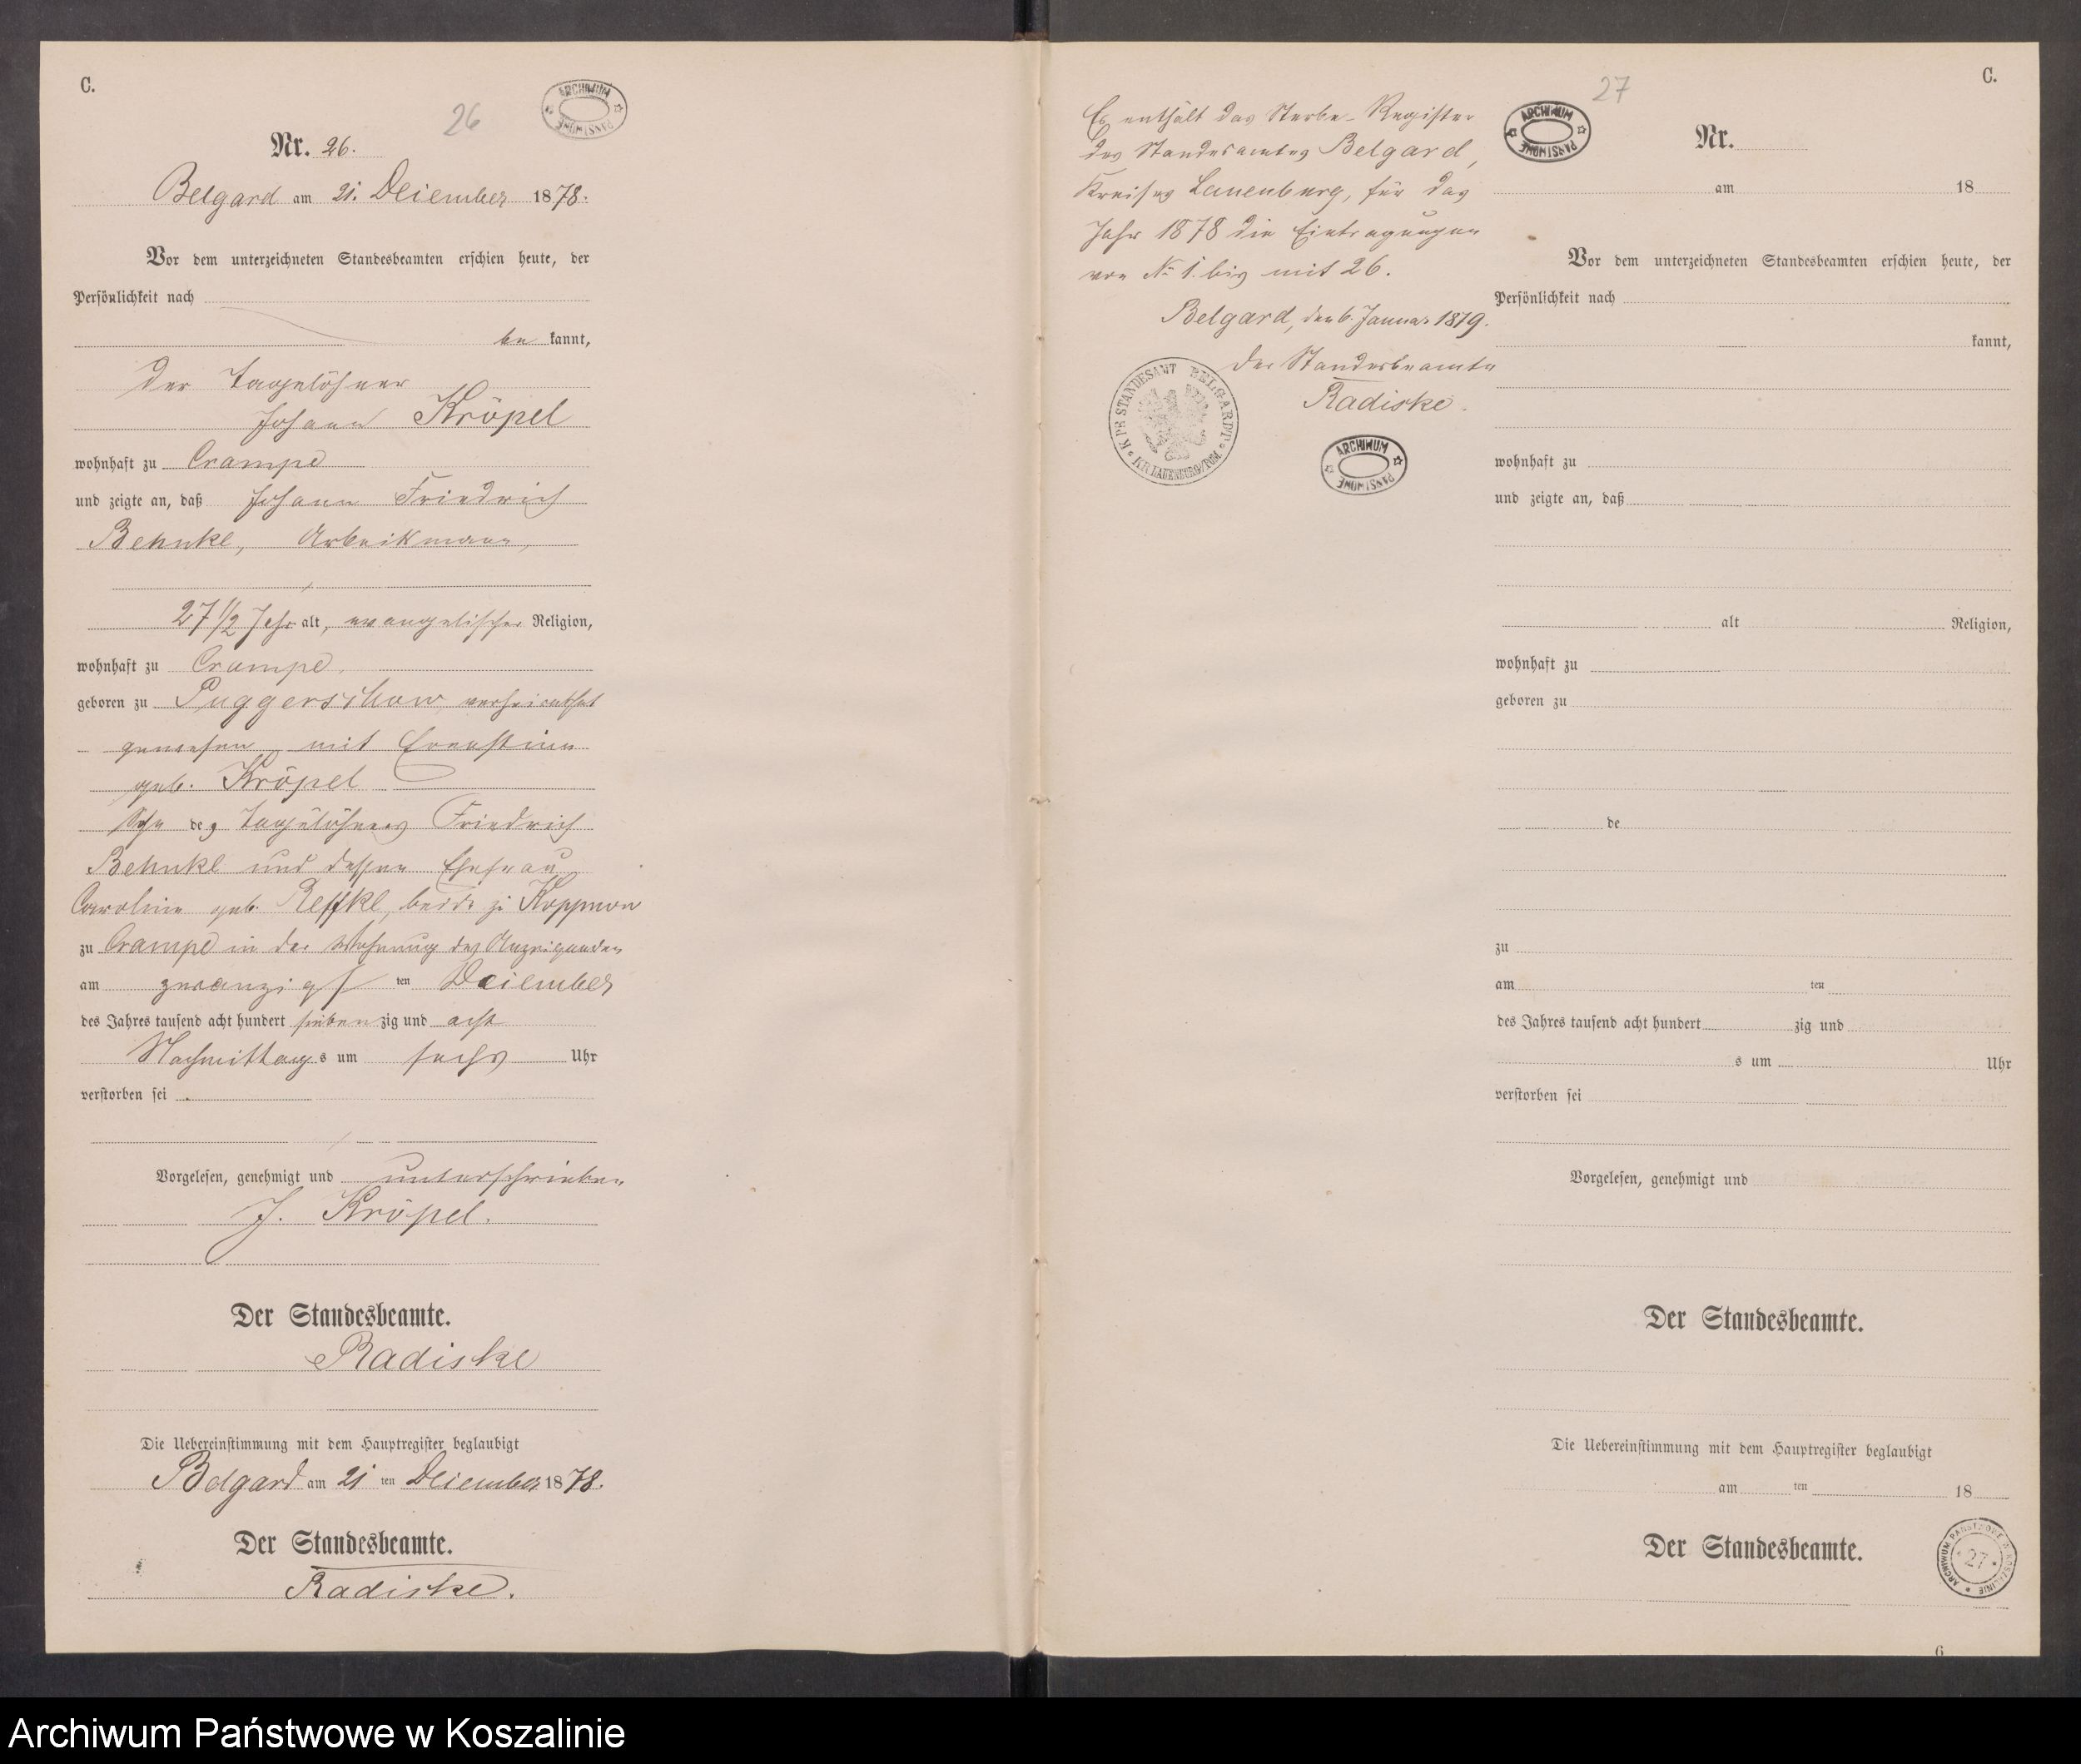 C.
26
ARCHIWUM PAŃSTWOWE
Nr. 26.
Belgard am 21. December 1878.
Vor dem unterzeichneten Standesbeamten erschien heute, der
Persönlichkeit nach
be kannt,
der Tagelöhner
Johann Kröpel
wohnhaft zu Crampe
und zeigte an, daß Johann Friedrich
Behnke, Arbeitsmann,
27 1/2 Jahr alt, evangelischer Religion,
wohnhaft zu Crampe.
geboren zu Puggerschow, verheirathet
gewesen mit Ernestine
geb. Kröpel
Sohn des Tagelöhners Friedrich
Behnke und dessen Ehefrau
Caroline geb. beide zu
zu Crampe in der Wohnung des Anzeigenden
am zwanzigsten December
des Jahres tausend acht hundert siebenzig und acht
Nachmittags um sechs Uhr
verstorben sei
Vorgelesen, genehmigt und unterschrieben
J. Kröpel.
Der Standesbeamte.
Radiske
Die Uebereinstimmung mit dem Hauptregister beglaubigt
Belgard am 21 ten December 1878.
Der Standesbeamte.
Radiske.
Es enthält das Sterbe-Register
des Standesamtes Belgard,
Kreises Lauenburg, für das
Jahr 1878 die Eintragungen
von No 1. bis mit 26.
Belgard, den 6. Januar 1879.
Der Standesbeamte
Radiske.
K. PR. STANDESAMT BELGARDT
KR. LAUENBURG/POM.
ARCHIWUM PAŃSTWOWE
27
C.
ARCHIWUM PAŃSTWOWE
Nr.
am 18
Vor dem unterzeichneten Standesbeamten erschien heute, der
Persönlichkeit nach
kannt,
wohnhaft zu
und zeigte an, daß
alt Religion,
wohnhaft zu
geboren zu
de
zu
am ten
des Jahres tausend acht hundert zig und
s um Uhr
verstorben sei
Vorgelesen, genehmigt und
Der Standesbeamte.
Die Uebereinstimmung mit dem Hauptregister beglaubigt
am ten 18
Der Standesbeamte.
ARCHIWUM PAŃSTWOWE W KOSZALINIE
27
6
Archiwum Państwowe w Koszalinie